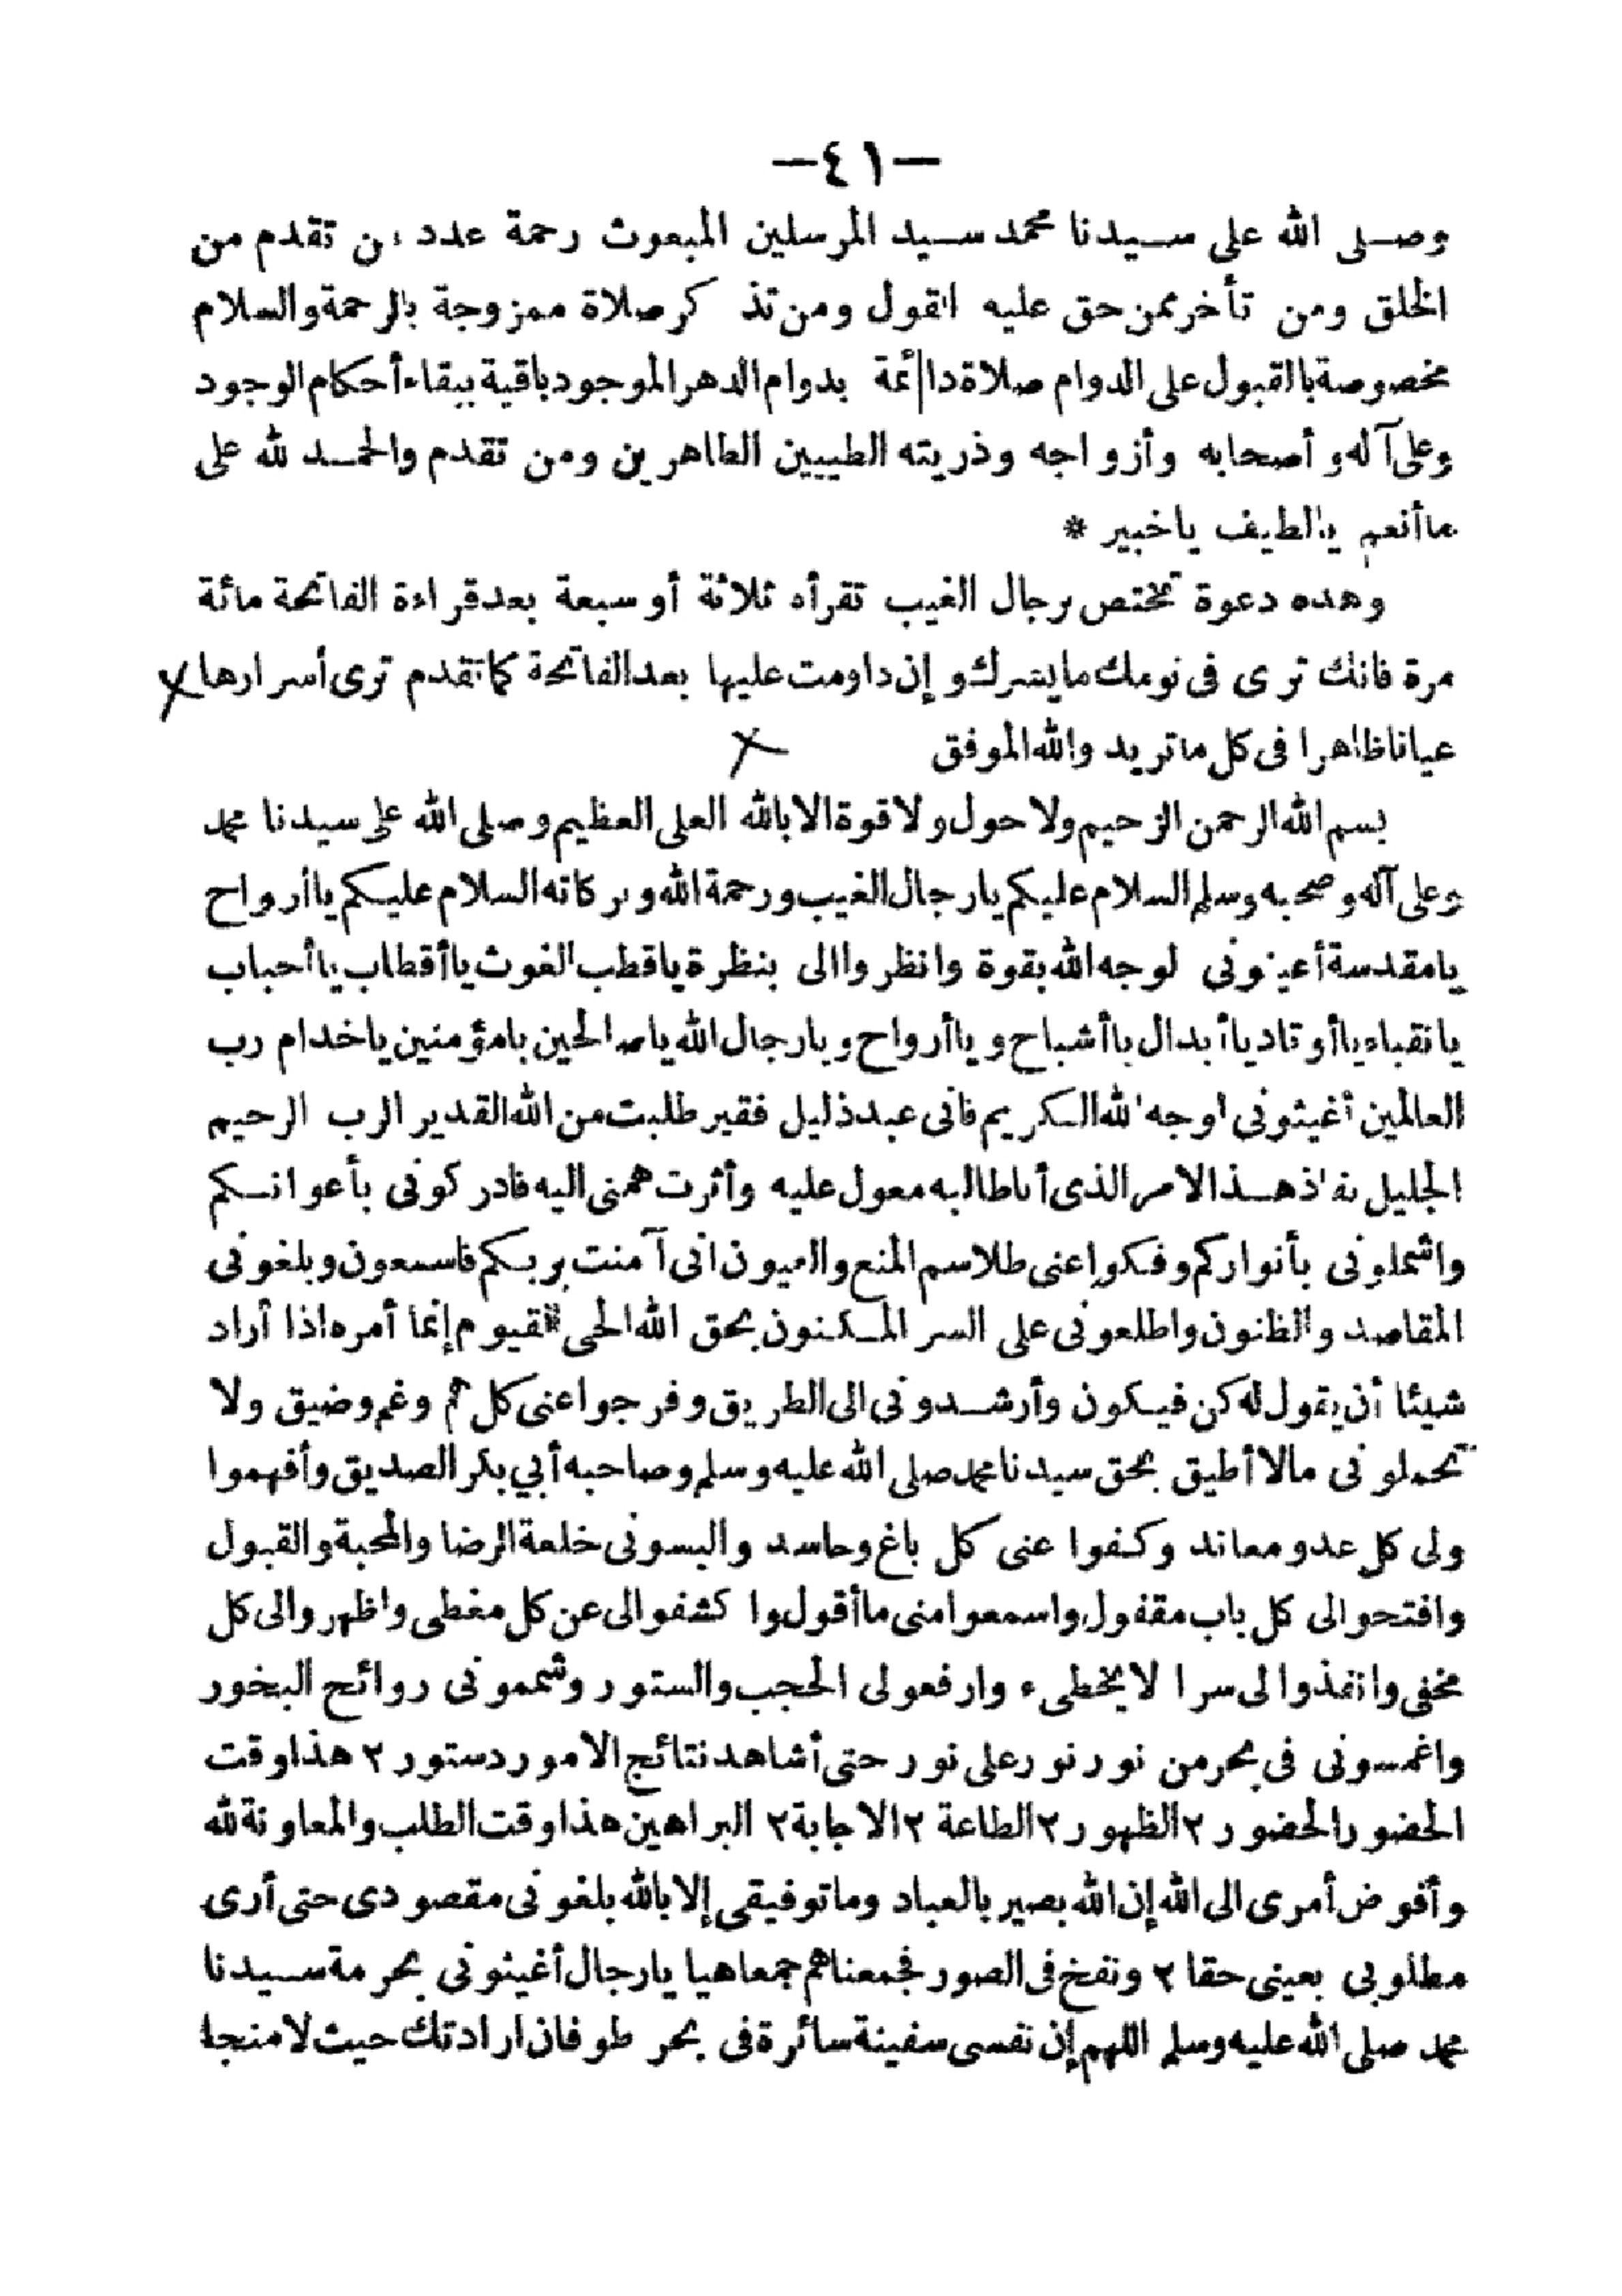 —٤١—
وصلى الله على سيدنا محمد سيد المرسلين المبعوث رحمة عدد من تقدم من
الخلق ومن تأخر ممن حق عليه القول ومن تذكر صلاة ممزوجة بالرحمة والسلام
مخصوصة بالقبول على الدوام صلاة دائمة بدوام الدهر الموجود باقية ببقاء أحكام الوجود
وعلى آله وأصحابه وأزواجه وذريته الطيبين الطاهرين ومن تقدم والحمد لله على
ما أنعم يا لطيف يا خبير *
وهذه دعوة تختص برجال الغيب تقرأه ثلاثة أو سبعة بعد قراءة الفاتحة مائة
مرة فانك ترى فى نومك ما يسرك وإن داومت عليها بعد الفاتحة كما تقدم ترى أسرارها
عيانا ظاهرا فى كل ما تريد والله الموفق
بسم الله الرحمن الرحيم ولا حول ولا قوة الا بالله العلى العظيم وصلى الله على سيدنا محمد
وعلى آله وصحبه وسلم السلام عليكم يا رجال الغيب ورحمة الله وبركاته السلام عليكم يا أرواح
يا مقدسة أعينونى لوجه الله بقوة وانظروا الى بنظرة يا قطب الغوث يا أقطاب يا أحباب
يا نقباء يا أوتاد يا أبدال يا أشباح ويا أرواح ويا رجال الله يا صالحين يا مؤمنين يا خدام رب
العالمين أغيثونى لوجه الله الكريم فانى عبد ذليل فقير طلبت من الله القدير الرب الرحيم
الجليل نفاذ هذا الامر الذى أنا طالبه معول عليه وأثرت همنى اليه فادركونى بأعوانكم
واشملونى بأنواركم وفكوا عنى طلاسم المنع والعيون انى آمنت بربكم فاسمعون وبلغونى
المقاصد والظنون واطلعونى على السر المكنون بحق الله الحى القيوم إنما أمره اذا أراد
شيئا أن يقول له كن فيكون وأرشدونى الى الطريق وفرجوا عنى كل هم وغم وضيق ولا
تحملونى مالا أطيق بحق سيدنا محمد صلى الله عليه وسلم وصاحبه أبي بكر الصديق وأفهموا
ولى كل عدو معاند وكفوا عنى كل باغ وحاسد والبسونى خلعة الرضا والمحبة والقبول
وافتحوا لى كل باب مقفول واسمعوا منى ما أقول وا كشفوا لى عن كل مغطى واظهروا لى كل
مخفى وانفذوا لى سرا لا يخطىء وارفعو لى الحجب والستور وشممونى روائح البخور
واغمسونى فى بحر من نور نور على نور حتى أشاهد نتائج الامور دستور ٢ هذا وقت
الحضور الحضور ٢ الظهور ٢ الطاعة ٢ الاجابة ٢ البراهين هذا وقت الطلب والمعاونة لله
وأفوض أمرى الى الله إن الله بصير بالعباد وما توفيقى إلا بالله بلغونى مقصودى حتى أرى
مطلوبى بعينى حقا ٢ ونفخ فى الصور فجمعناهم جمعا هيا يا رجال أغيثونى بحرمة سيدنا
محمد صلى الله عليه وسلم اللهم إن نفسى سفينة سائرة فى بحر طوفان ارادتك حيث لا منجا